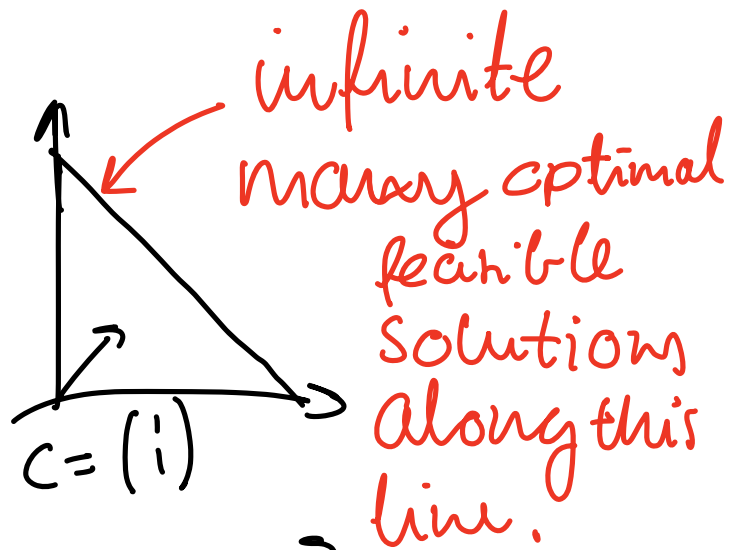 infinite
many optimal
feasible
solutions
along this
line.
C = (1 1)